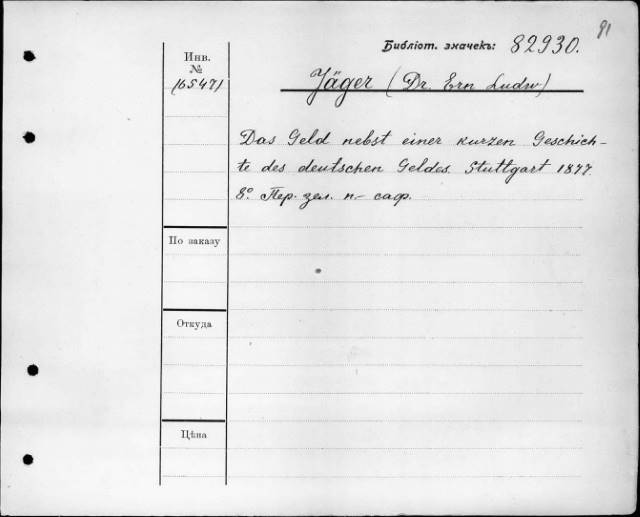 91
Библіот. значекъ: 82930.
Инв.
№
16547/
Jäger (Dr. Ern Ludw)
Das Geld nebst einer kurzen Geschich-
te des deutschen Geldes. Stuttgart 1877.
8° Пер. зел. п.- саф.
По заказу
Откуда
Цѣна